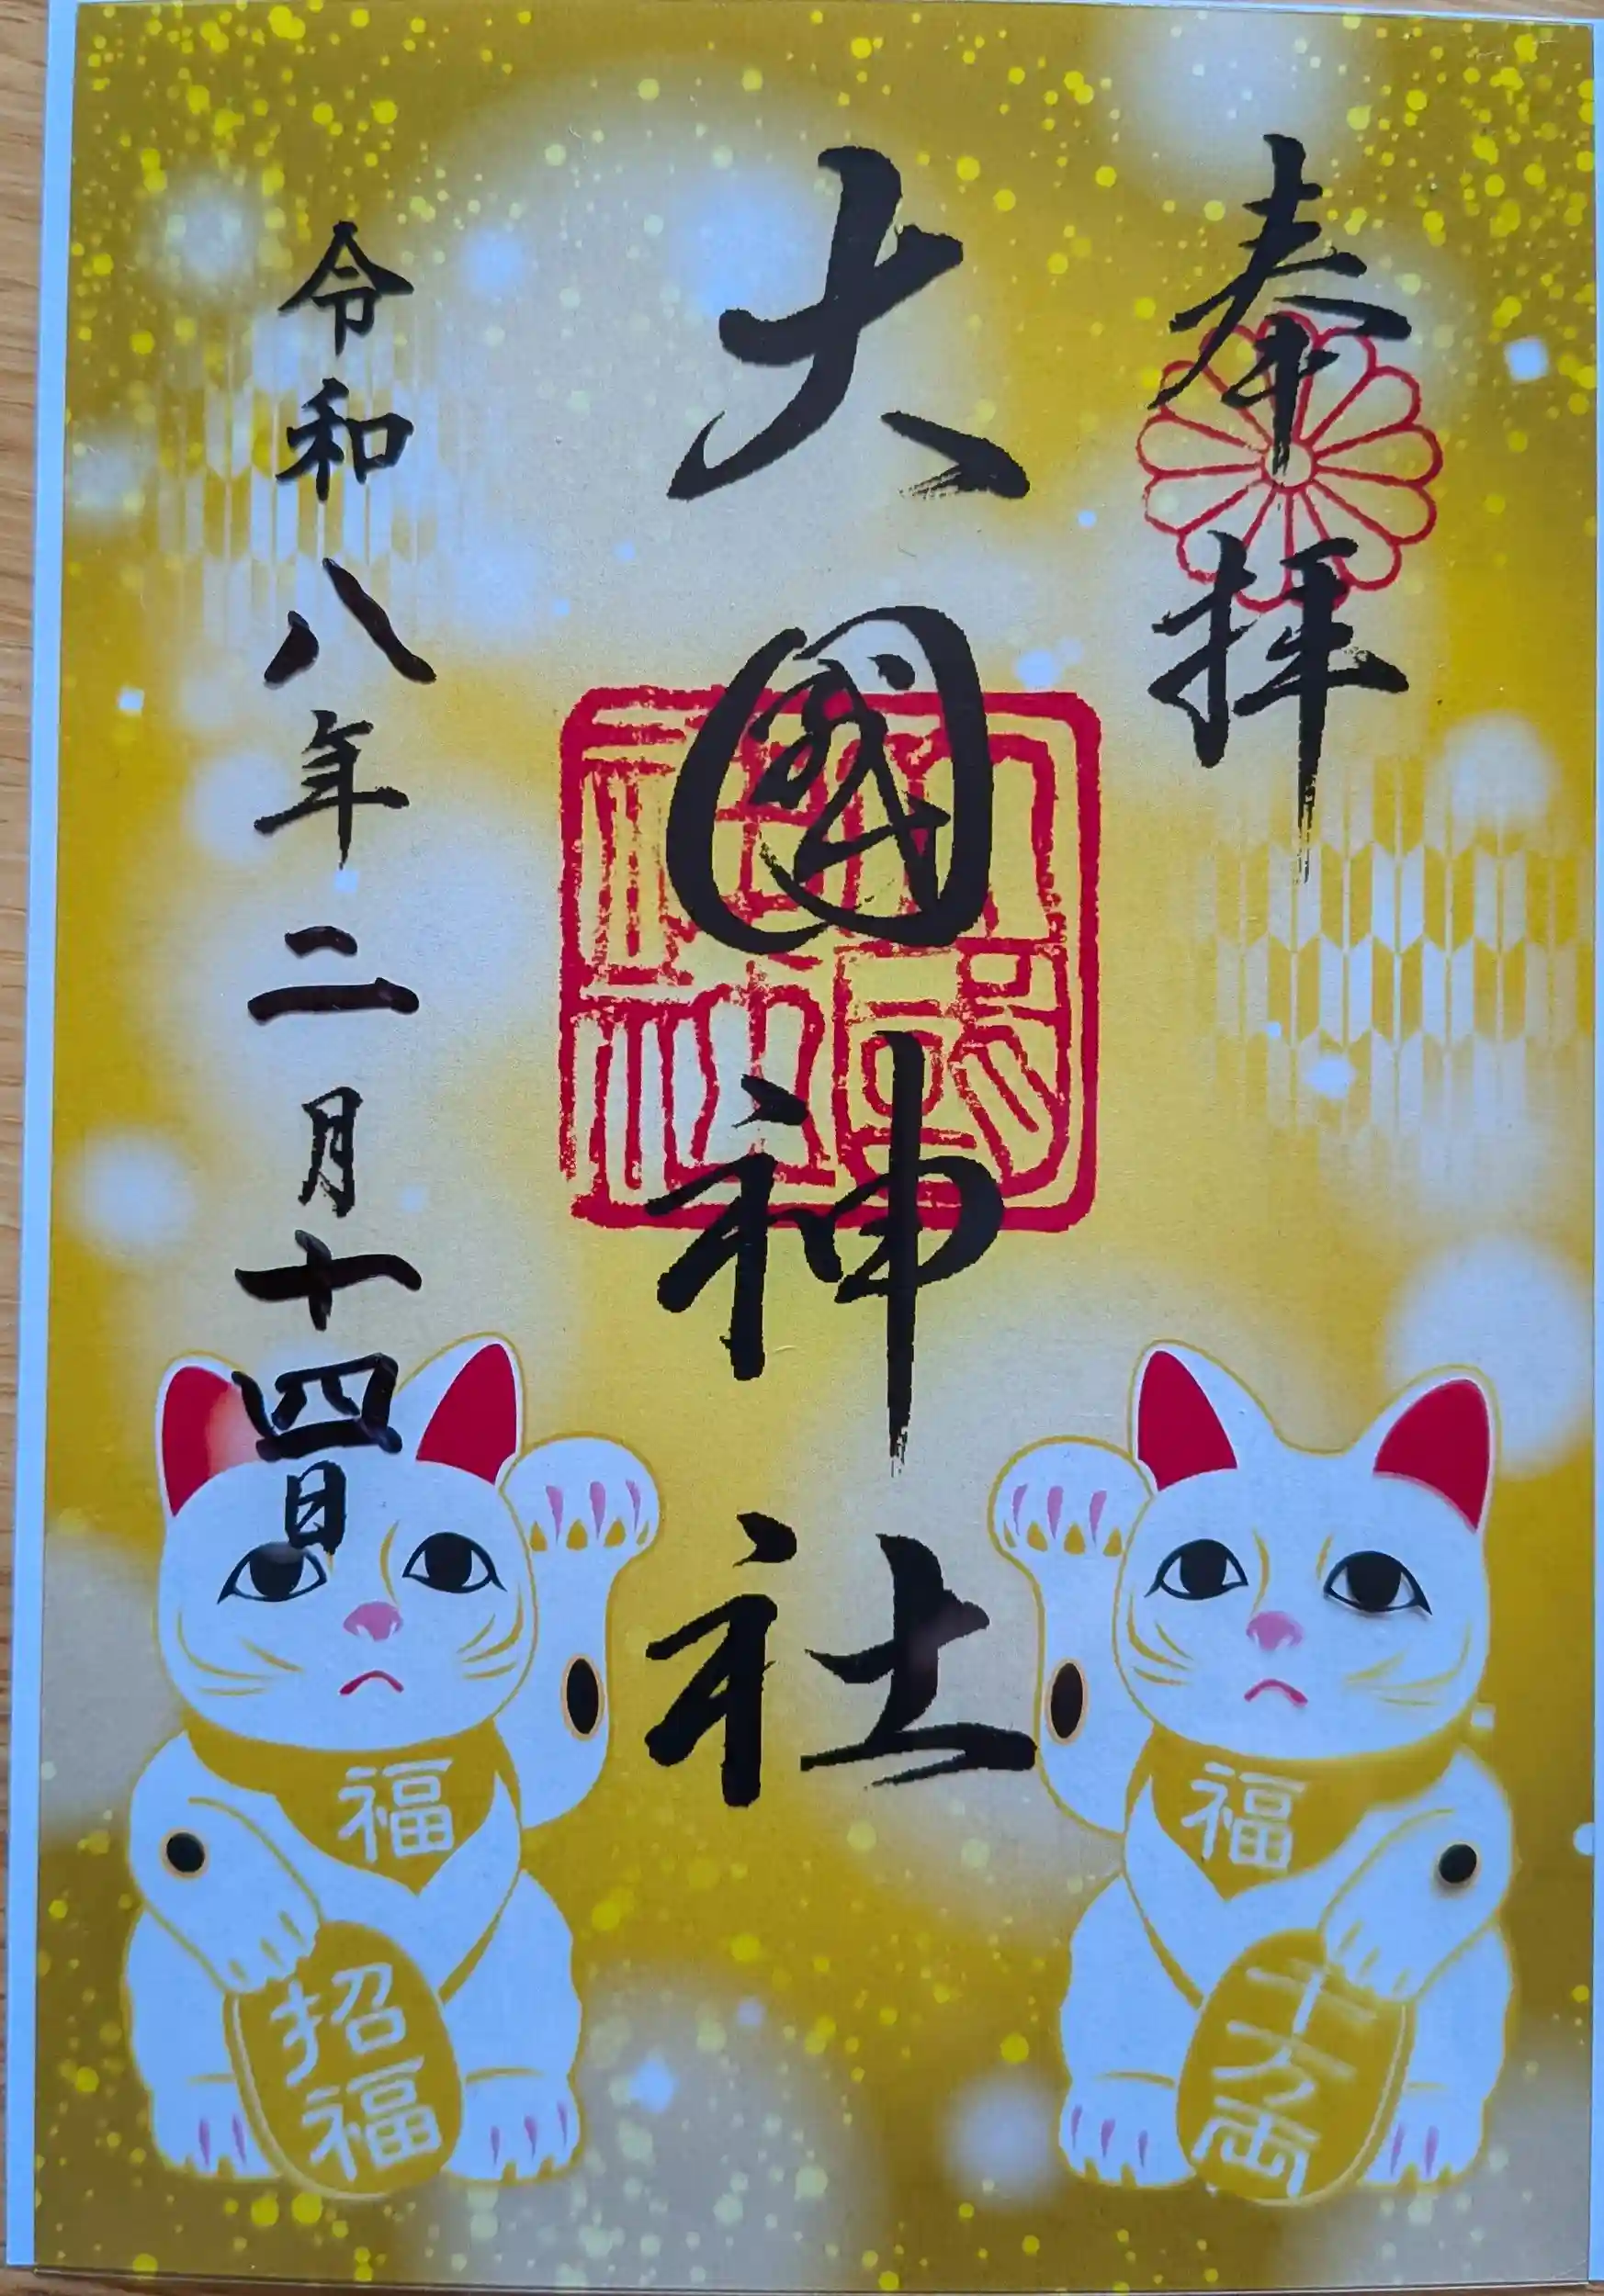 奉拝
大國神社
令和八年二月十四日
福
千万両
福
招福